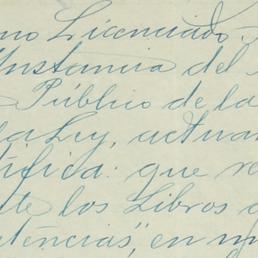 no Licenciado
Instancia del
Público de la
la Ley, actuar
tifica: que re
te los Libros
tencias", en